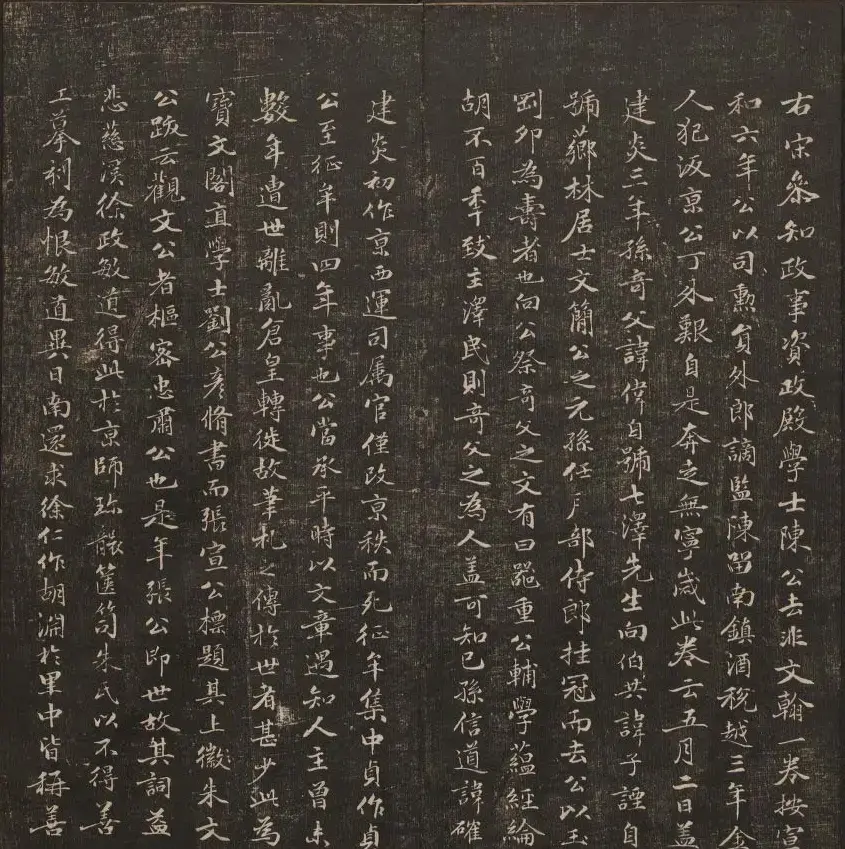 右宋叅知政事資政殿學士陳公去非文翰一卷按宣
和六年公以司勳貟外郎謫監陳留南鎮酒稅越三年金
人犯汲京公丁外艱自是奔走無寧歲此卷云五月二日蓋
建炎三年孫奇父諱偉自號七澤先生向伯共諱子諲自
號薌林居士文簡公之元孫任戶部侍郎挂冠而去公以玉
罡卯為壽者也向公祭奇父之文有曰器重公輔學蘊經綸
胡不百秊致主澤民則奇父之為人盖可知已孫信道諱確
建炎初作京西運司属官僅改京秩而死征牟集中貞作貞
公至征牟則四年事也公當承平時以文章遇知人主曾未
數年遭世離亂倉皇轉徙故筆札之傳於世者甚少此為
寶文閣直學士劉公彥脩書而張宣公標題其上徽朱文
公跋云觀文公者樞密忠肅公也是年張公即世故其詞益
悲慈溪徐政敏道得此於京師珎襲篋笥朱氏以不得善
工摹刊為恨敏道異日南還求徐仁作胡淵於里中皆稱善